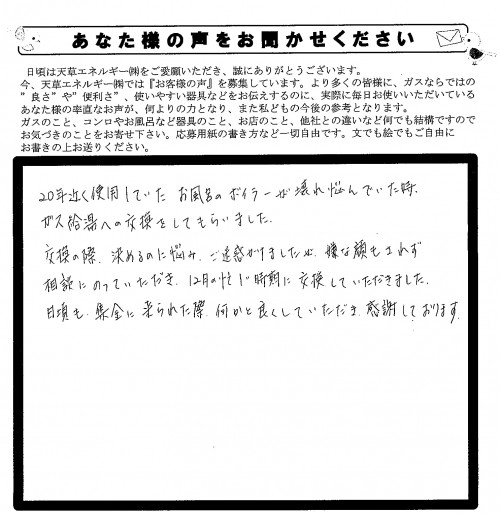 あなた様の声をお聞かせください
日頃は天草エネルギー㈱をご愛顧いただき、誠にありがとうございます。
今、天草エネルギー㈱では『お客様の声』を募集しています。より多くの皆様に、ガスならではの
"良さ"や"便利さ"、使いやすい器具などをお伝えするのに、実際に毎日お使いいただいている
あなた様の率直なお声が、何よりの力となり、また私どもの今後の参考となります。
ガスのこと、コンロやお風呂など器具のこと、お店のこと、他社との違いなど何でも結構ですので
お気づきのことをお寄せ下さい。応募用紙の書き方など一切自由です。文でも絵でもご自由に
お書きの上お送りください。
20年近く使用していた お風呂のボイラーが壊れ悩んでいた時、
ガス給湯への交換をしてもらいました。
交換の際、決めるのに悩み、ご迷惑かけましたが、嫌な顔もされず
相談にのっていただき、12月の忙しい時期に交換していただきました。
日頃も、集金に来られた際、何かと良くしていただき、感謝しております。